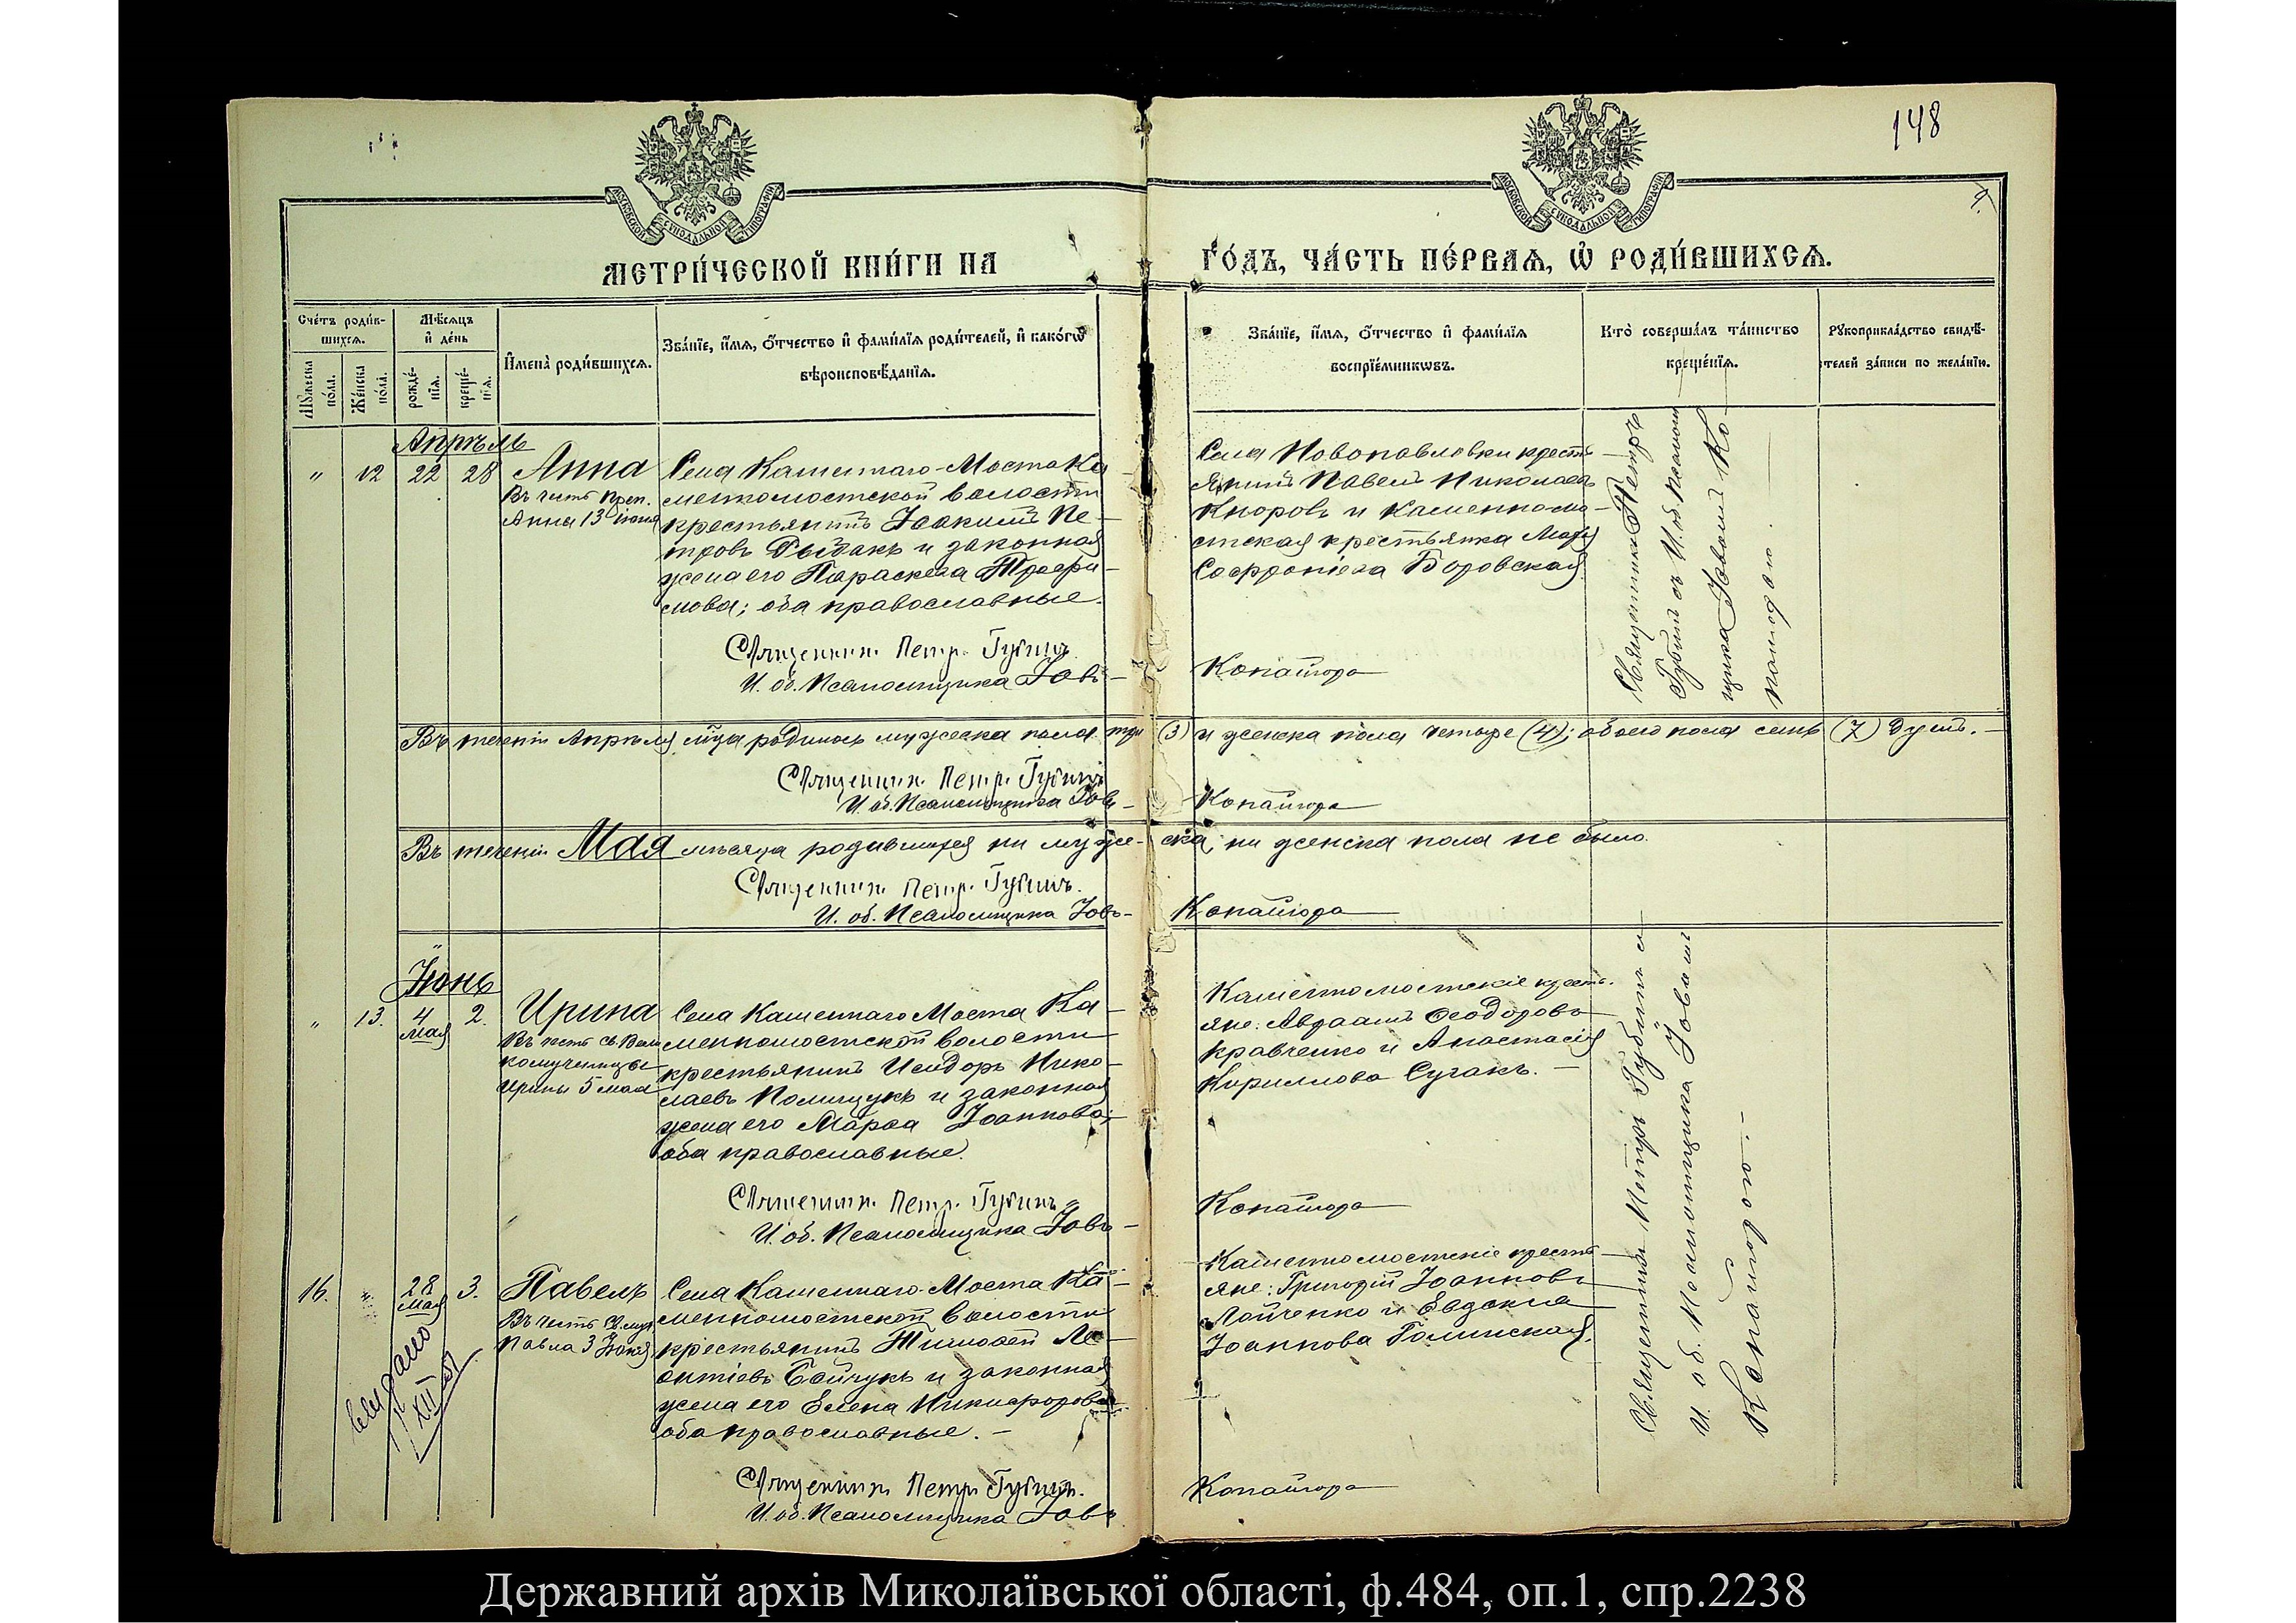 148
МОСКОВСКОЙ СѴНОДАЛЬНОЙ ТИПОГРАФІИ
МОСКОВСКОЙ СѴНОДАЛЬНОЙ ТИПОГРАФІИ
МЕТРИ́ЧЕСКОЙ КНИ́ГИ НА
ГО́ДЪ, ЧА́СТЬ ПЕ́РВАЯ, Ѡ РОДИ́ВШИХСЯ.
Сче́тъ роди́в-
шихся.
Мѣсяцъ
и де́нь
Му́жеска
по́ла.
Же́нска
по́ла.
рожде́-
нїя.
креще́-
нїя.
Имена̀ роди́вшихся.
Зва́нїе, и́мя, ѻ҆́тчество и҆ фами́лїя роди́телей, и҆ како́гѡ
вѣроисповѣ́данїя.
Зва́нїе, и́мя, ѻ҆́тчество и҆ фами́лїя
воспрїе́мникѡвъ.
Кто̀ соверша́лъ та́инство
креще́нїя.
Рꙋкоприкла́дство свидѣ́-
телей за́писи по жела́нїю.
Апрѣль
" 12 22 28 Анна
Въ честь Преп.
Анны 13 іюня
Села Каменнаго-Моста Ка-
менномостской волости
крестьянинъ Іоакимъ Пе-
тровъ Рыбакъ и законная
жена его Параскева Трофи-
мова; оба православные.
Священникъ Петръ Губинъ
И. об. Псаломщика Іовъ-
Села Новопавловки кресть-
янинъ Павелъ Николаевъ
Кноровъ и Каменномо-
стская крестьянка Марѳа
Софроніева Боровская
Копайгора
Священникъ Петръ
Губинъ съ И. об. Псалом-
щика Іовомъ Ко-
пайгорою.
Въ теченіи Апрѣля м-ца родилось мужеска пола три (3) и женска пола четыре (4); обоего пола семь (7) душъ. -
Священникъ Петръ Губинъ
И. об. Псаломщика Іовъ-
Копайгора
Въ теченіи Мая мѣсяца родившихся ни муже-ска, ни женска пола не было.
Священникъ Петръ Губинъ.
И. об. Псаломщика Іовъ-
Копайгора
Іюнь
" 13. 4
мая 2. Ирина
Въ честь Св. Вели
комученицы
Ирины 5 мая
Села Каменнаго Моста Ка-
менномостской волости
крестьянинъ Исидоръ Нико-
лаевъ Полищукъ и законная
жена его Марѳа Іоаннова;
оба православные.
Священникъ Петръ Губинъ
И. об. Псаломщика Іовъ-
Каменномостскіе кресть-
яне: Авраамъ Ѳеодоровъ
Кравченко и Анастасія
Кириллова Сугакъ. -
Копайгора
16. " 28
мая 3. Павелъ
Въ честь Св. муч.
Павла 3 Іюня
Села Каменнаго-Моста Ка-
менномостской волости
крестьянинъ Тимоѳей Ле-
онтіевъ Бойчукъ и законная
жена его Елена Никифорова
оба православные. -
Священникъ Петръ Губинъ.
И. об. Псаломщика Іовъ
Каменномостскіе кресть-
яне: Григорій Іоанновъ
Лойченко и Евдокія
Іоаннова Голинская.
Копайгора
Священникъ Петръ Губинъ съ
И. об. Псаломщика Іовомъ
Копайгорою. -
Державний архів Миколаївської області, ф.484, оп.1, спр.2238